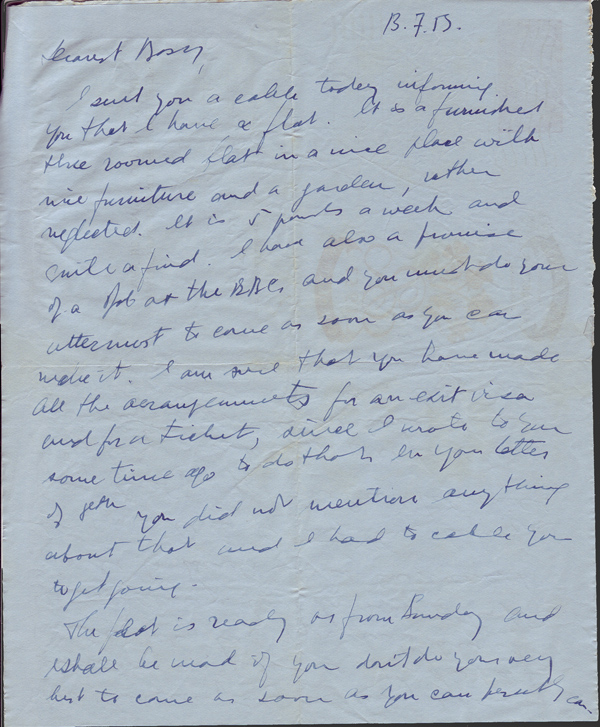 13.7.5
Dearest
I sent you a cable today informing
you that I have a flat. It is a furnished
three roomed flat in a nice place with
nice furniture and a garden, rather
neglected. It is 5 pounds a week and
quite a find. I have also a promise
of a job at the BBC and you must do your
uttermost to come as soon as you can
make it. I am sure that you have made
all the arrangements for an exit visa
and for a ticket, since I wrote to you
some time ago to do that. In your letter
of you did not mention anything
about that and I had to cable you
to get going.
The flat is ready as from Sunday and
I shall be mad if you don't do your very
best to come as soon as you can